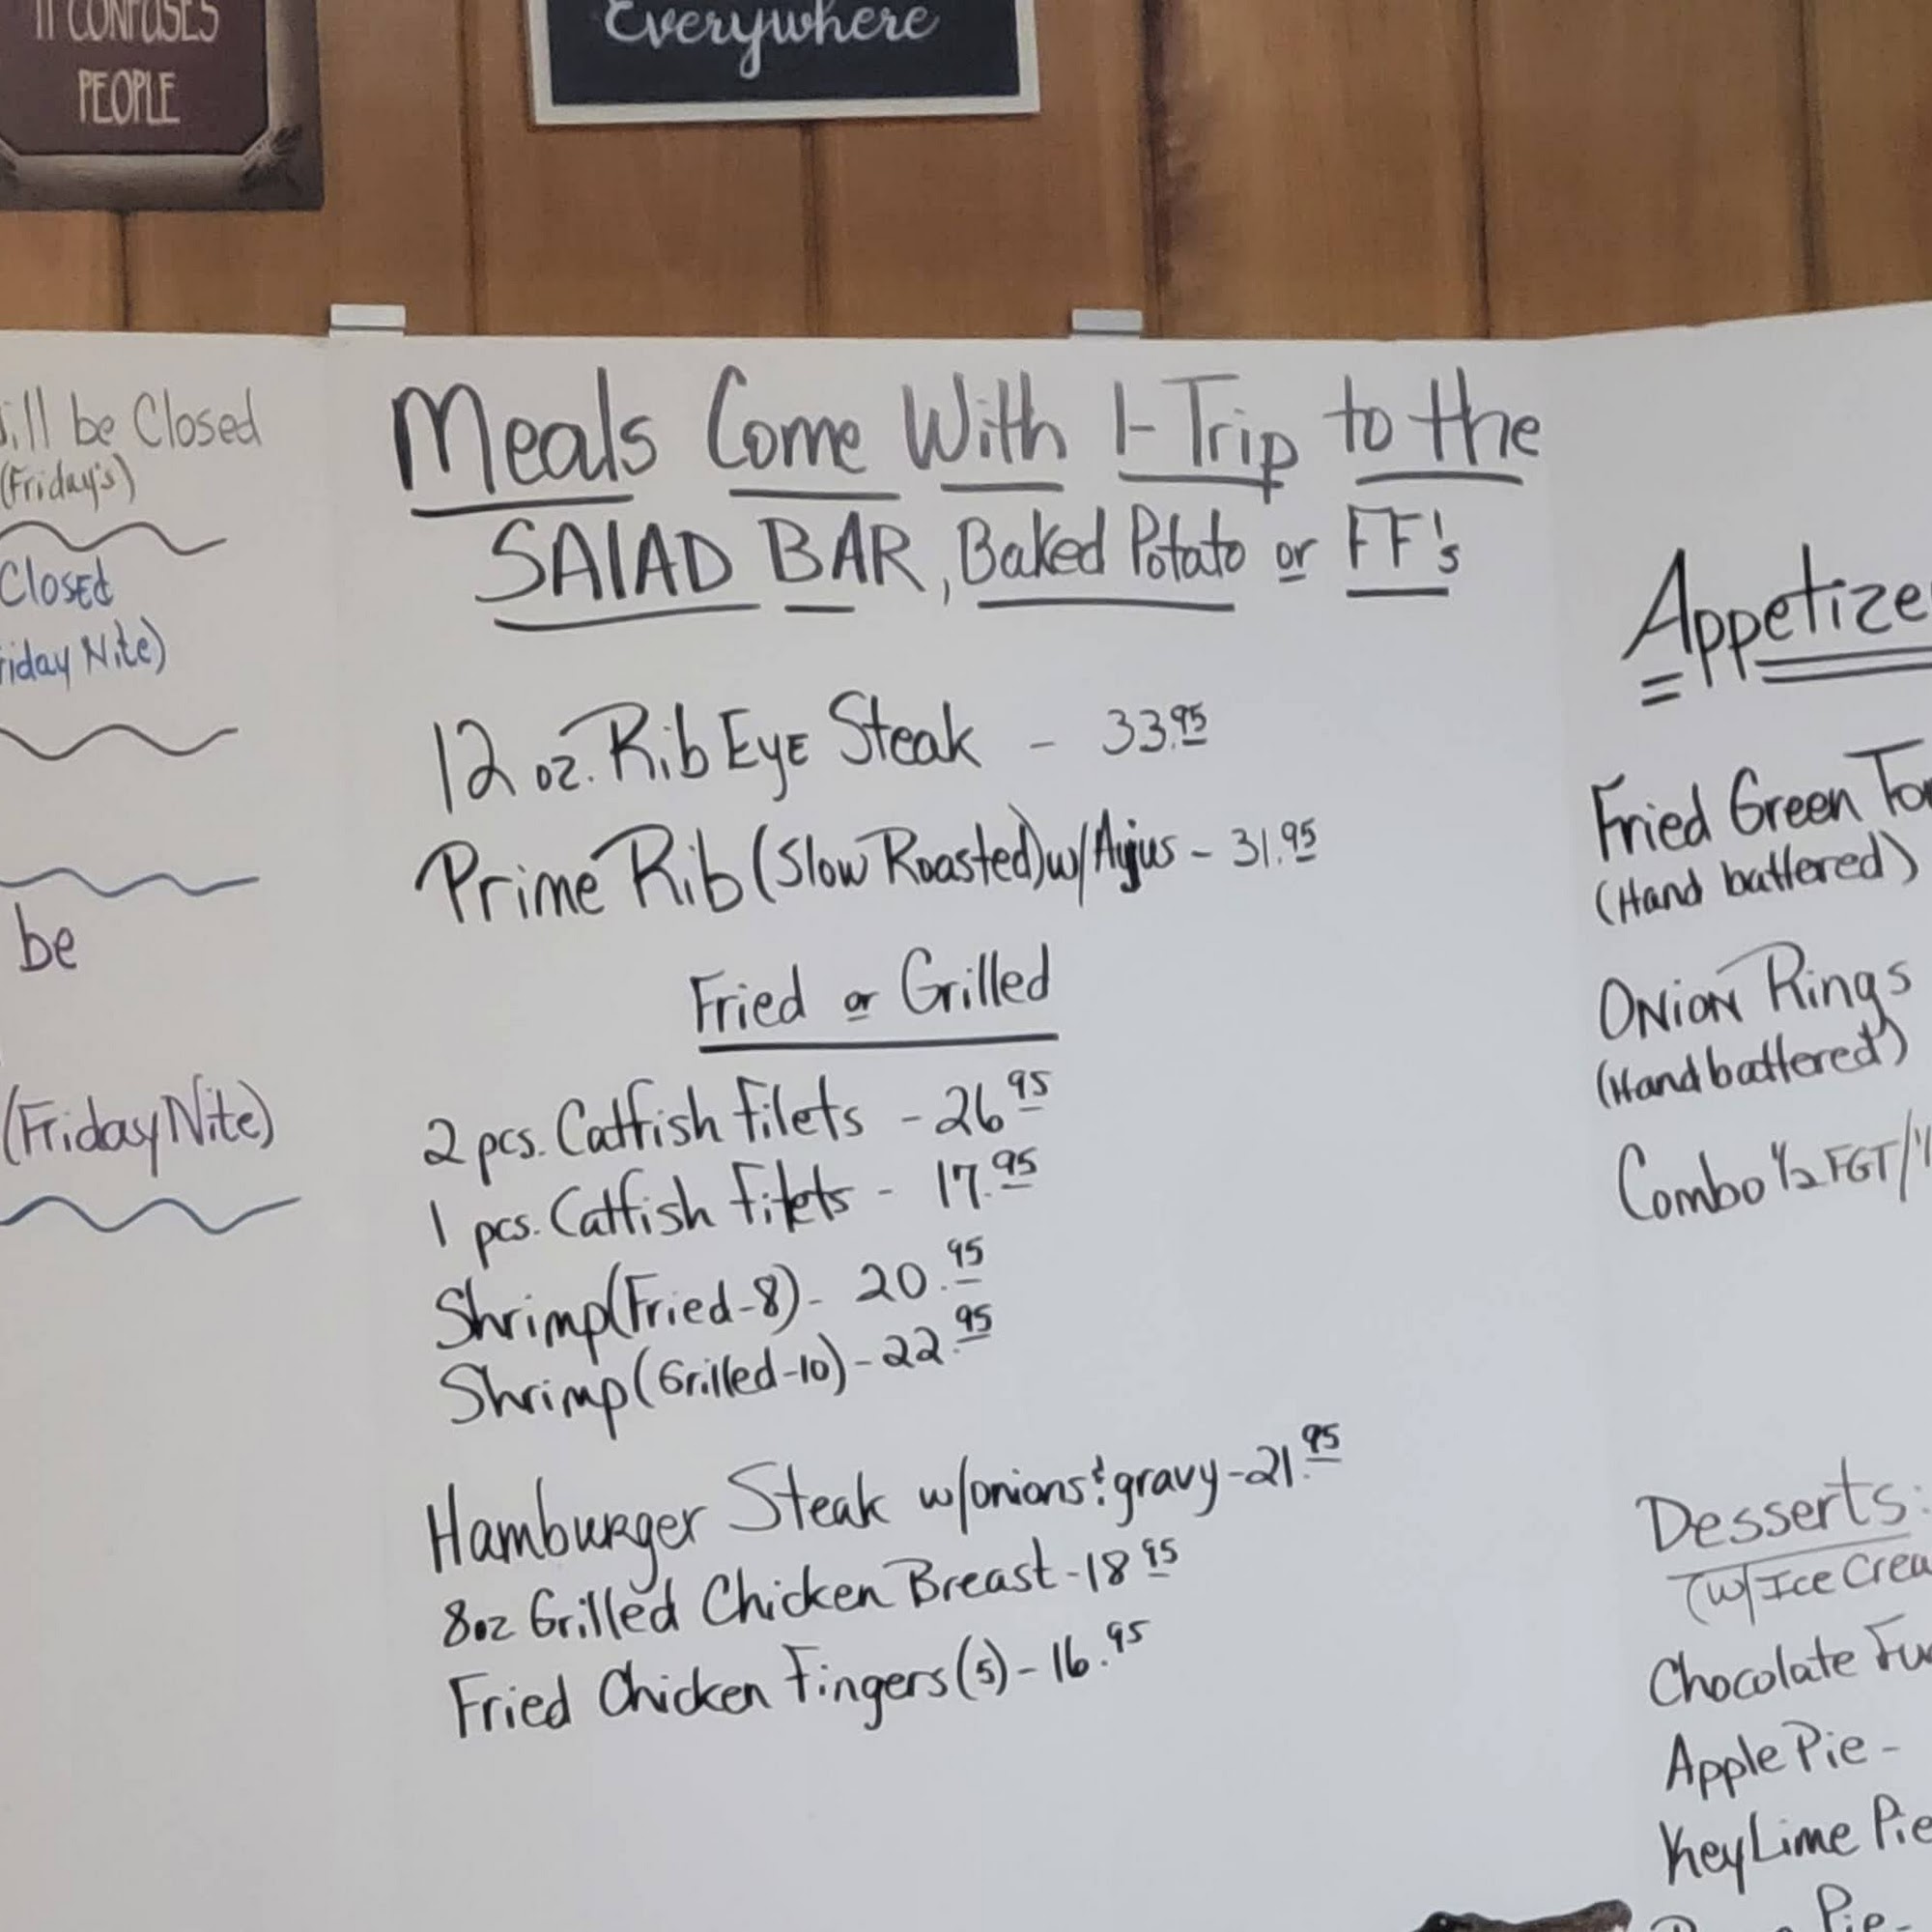 IT CONFUSES
PEOPLE
Everywhere
will be Closed
(Friday's)
Closed
Friday Nite)
be
(Friday Nite)
Meals Come With 1-Trip to the
SALAD BAR, Baked Potato or FF's
12 oz. Rib Eye Steak - 33.95
Prime Rib (Slow Roasted) w/Aujus - 31.95
Fried or Grilled
2 pcs. Catfish Filets - 26 95
1 pcs. Catfish Filets - 17.95
Shrimp (Fried-8) - 20.95
Shrimp (Grilled-10) - 22.95
Hamburger Steak w/onions & gravy - 21.95
8oz Grilled Chicken Breast - 18 95
Fried Chicken Fingers (5) - 16.95
Appetize
Fried Green To
(Hand battered)
Onion Rings
(Hand battered)
Combo 1/2 FGT/
Desserts:
(w/Ice Crea
Chocolate Fu
Apple Pie -
Key Lime Pie
Pie -